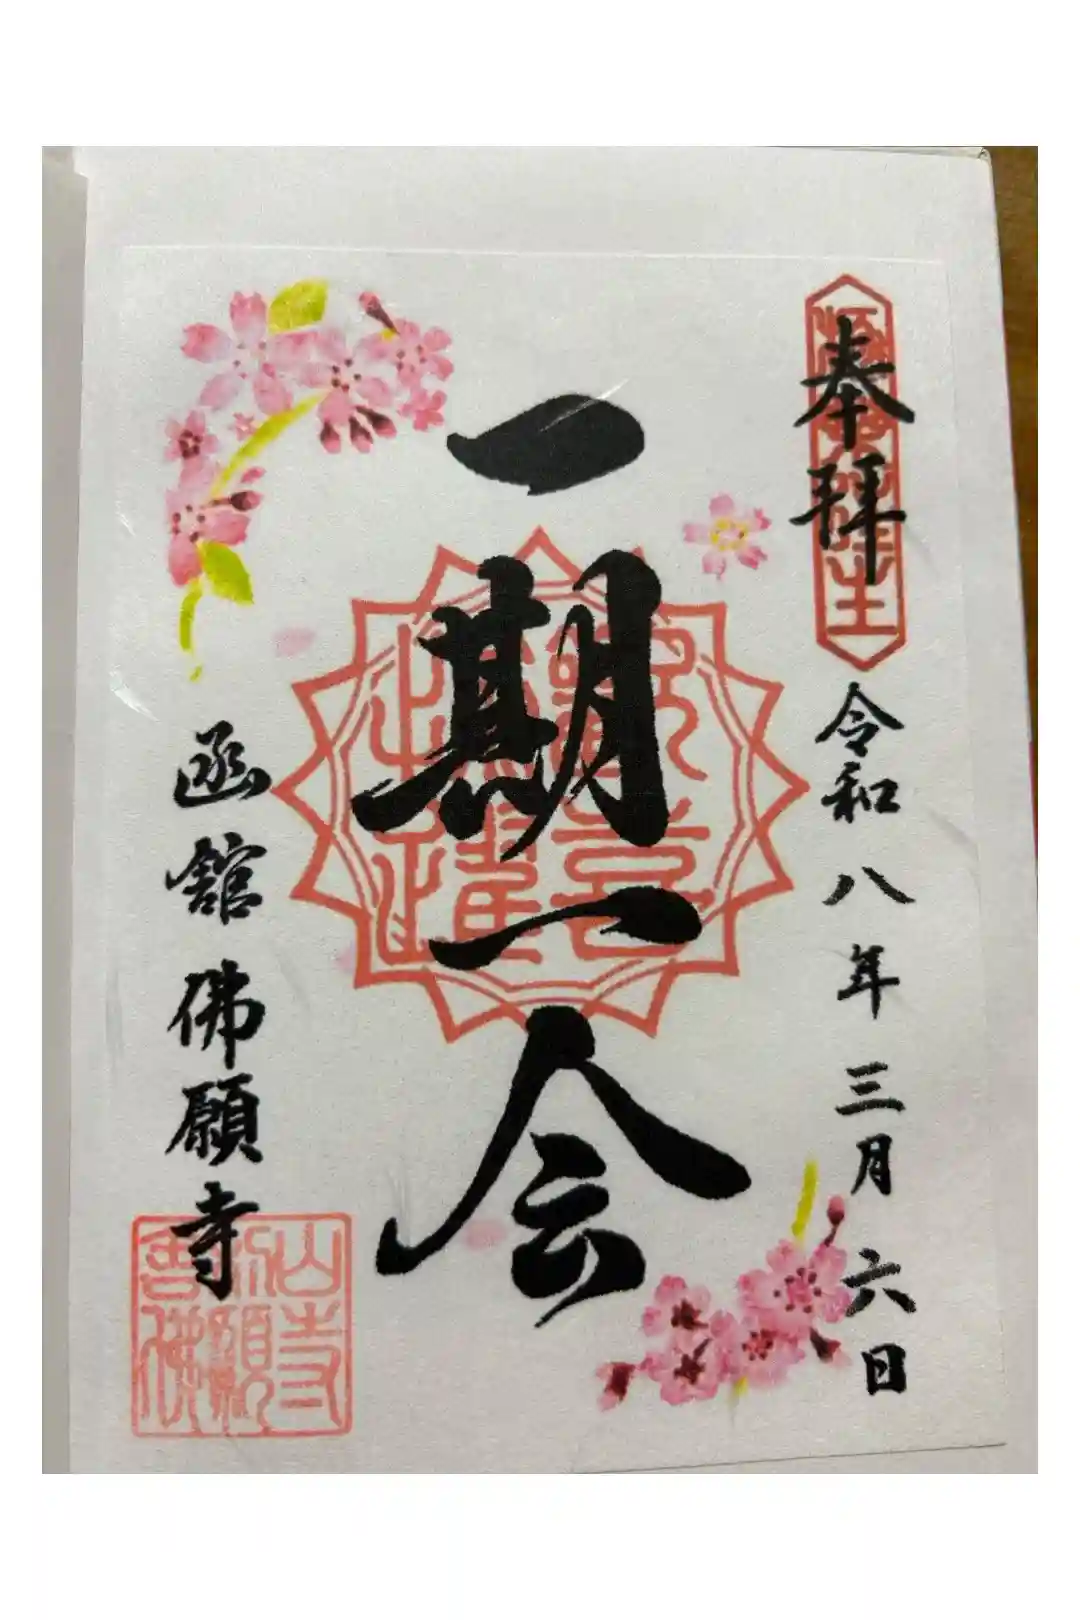 奉拝
令和八年三月六日
一期一会
函館佛願寺
歓喜
踊躍